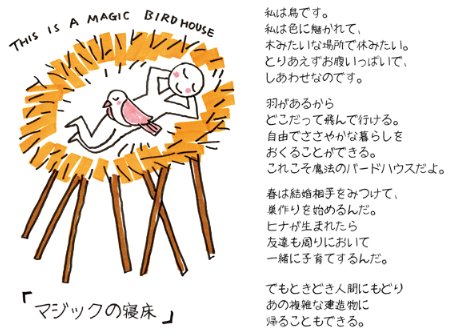 THIS IS A MAGIC BIRDHOUSE
「マジックの寝床」
私は鳥です。
私は色に魅かれて、
木みたいな場所で休みたい。
とりあえずお腹いっぱいで、
しあわせなのです。
羽があるから
どこだって飛んで行ける。
自由でささやかな暮らしを
おくることができる。
これこそ魔法のバードハウスだよ。
春は結婚相手をみつけて、
巣作りを始めるんだ。
ヒナが生まれたら
友達も周りにおいて
一緒に子育てするんだ。
でもときどき人間にもどり
あの複雑な建造物に
帰ることもできる。